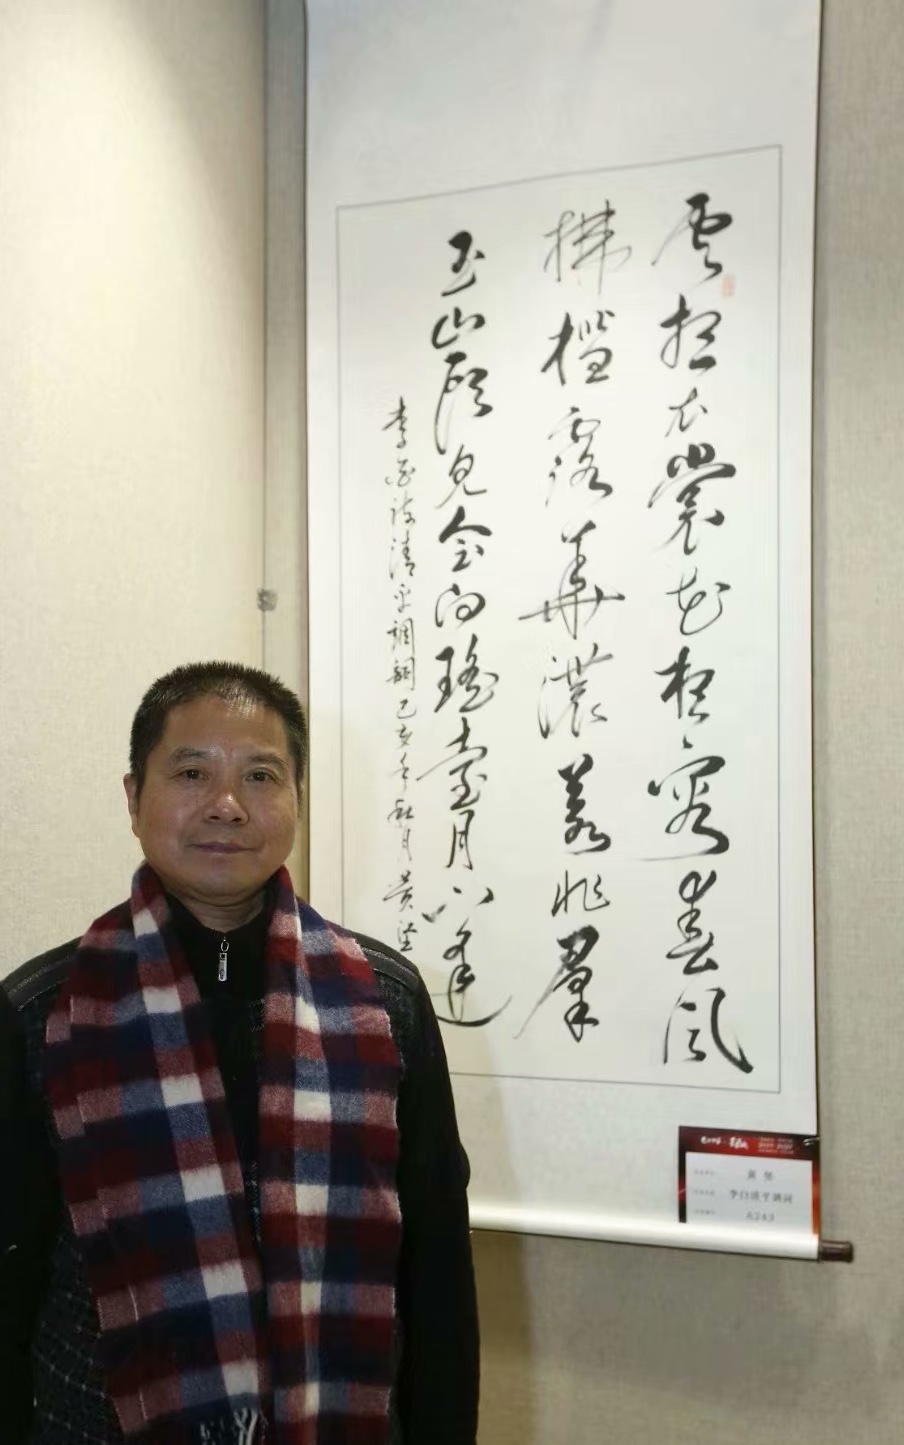 雲想衣裳花想容春風
拂檻露華濃若非羣
玉山頭見會向瑤臺月下逢
李白詩清平調詞己亥年秋月黄坚
黄坚
李白清平调词
A243